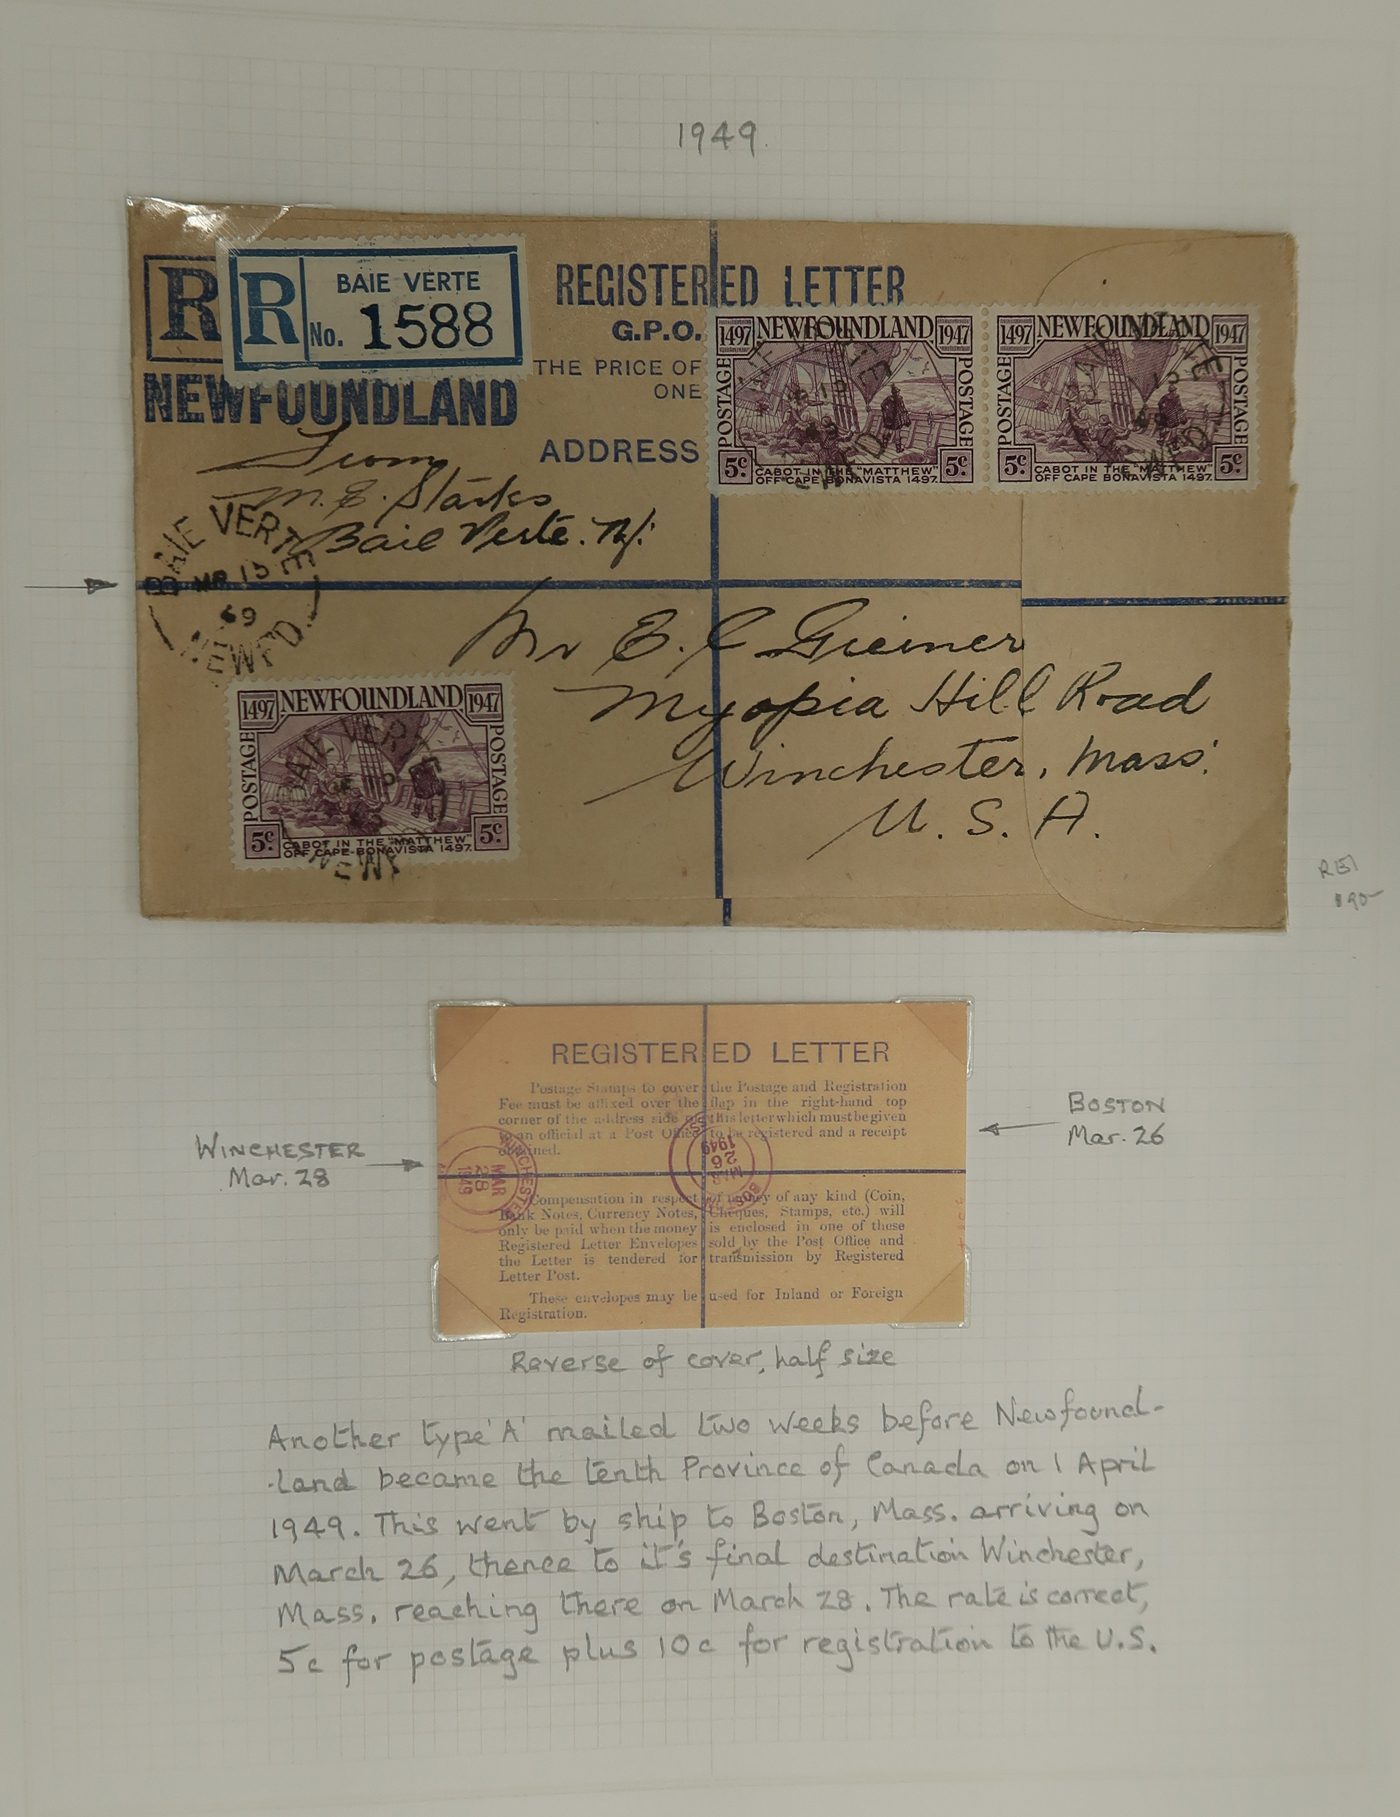 1949
R
R
BAIE VERTE
No. 1588
NEWFOUNDLAND
REGISTERED LETTER
G.P.O.
THE PRICE OF
ONE
ADDRESS
1497 NEWFOUNDLAND 1947
POSTAGE POSTAGE
5c CABOT IN THE "MATTHEW" 5c
OFF CAPE BONAVISTA 1497.
1497 NEWFOUNDLAND 1947
POSTAGE POSTAGE
5c CABOT IN THE "MATTHEW" 5c
OFF CAPE BONAVISTA 1497.
From
M. E. Starks
Baie Verte. Nf.
BAIE VERTE
MR 15
49
NEWF'D.
Mr E. C Greiner
Myopia Hill Road
Winchester, Mass.
U. S. A.
1497 NEWFOUNDLAND 1947
POSTAGE POSTAGE
5c CABOT IN THE "MATTHEW" 5c
OFF CAPE BONAVISTA 1497.
BAIE VERTE
REGISTERED LETTER
Postage Stamps to cover the Postage and Registration
Fee must be affixed over the flap in the right-hand top
corner of the address side of this letter which must be given
to an official at a Post Office to be registered and a receipt
obtained.
Compensation in respect of money of any kind (Coin,
Bank Notes, Currency Notes, Cheques, Stamps, etc.) will
only be paid when the money is enclosed in one of these
Registered Letter Envelopes sold by the Post Office and
the Letter is tendered for transmission by Registered
Letter Post.
These envelopes may be used for Inland or Foreign
Registration.
WINCHESTER
MAR
28
1949
BOSTON
MAR
26
1949
WINCHESTER
Mar. 28
BOSTON
Mar. 26
Reverse of cover, half size
Another type 'A' mailed two weeks before Newfound-
-land became the tenth Province of Canada on 1 April
1949. This went by ship to Boston, Mass. arriving on
March 26, thence to it's final destination Winchester,
Mass. reaching there on March 28. The rate is correct,
5c for postage plus 10c for registration to the U.S.